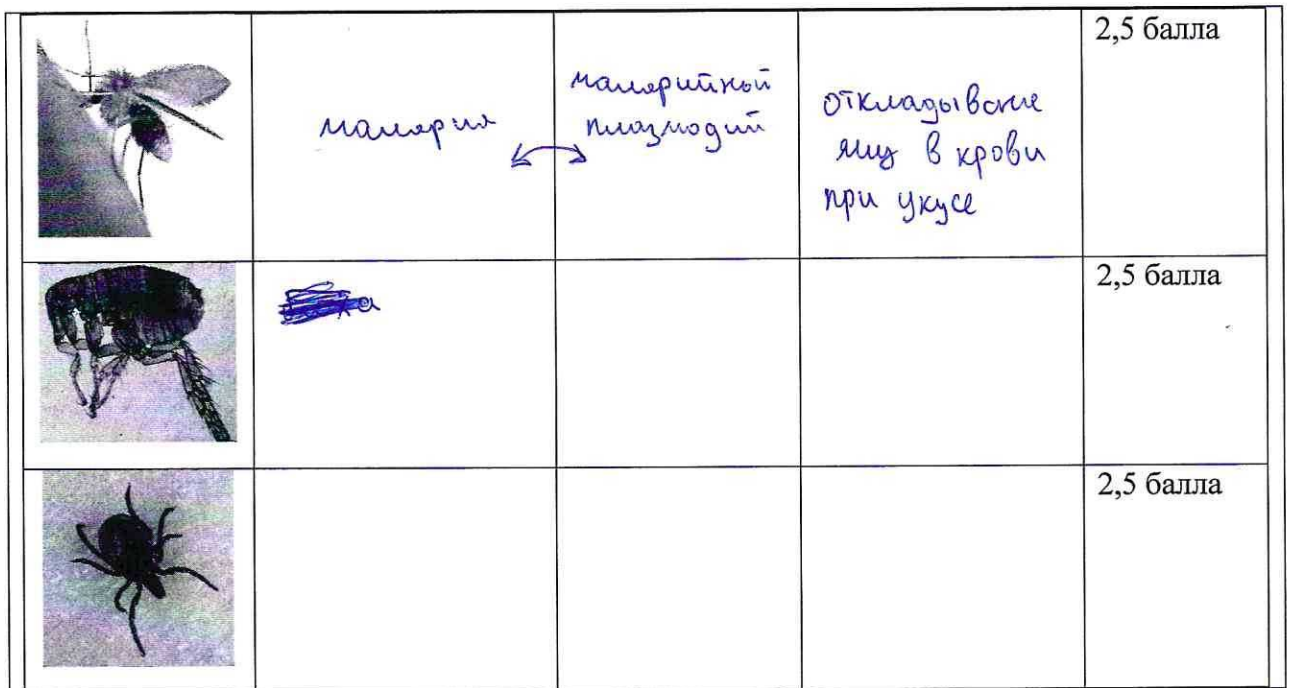 2,5 балла
малярия
малярийной
плазмодий
откладывание
яиц в крови
при укусе
2,5 балла
2,5 балла